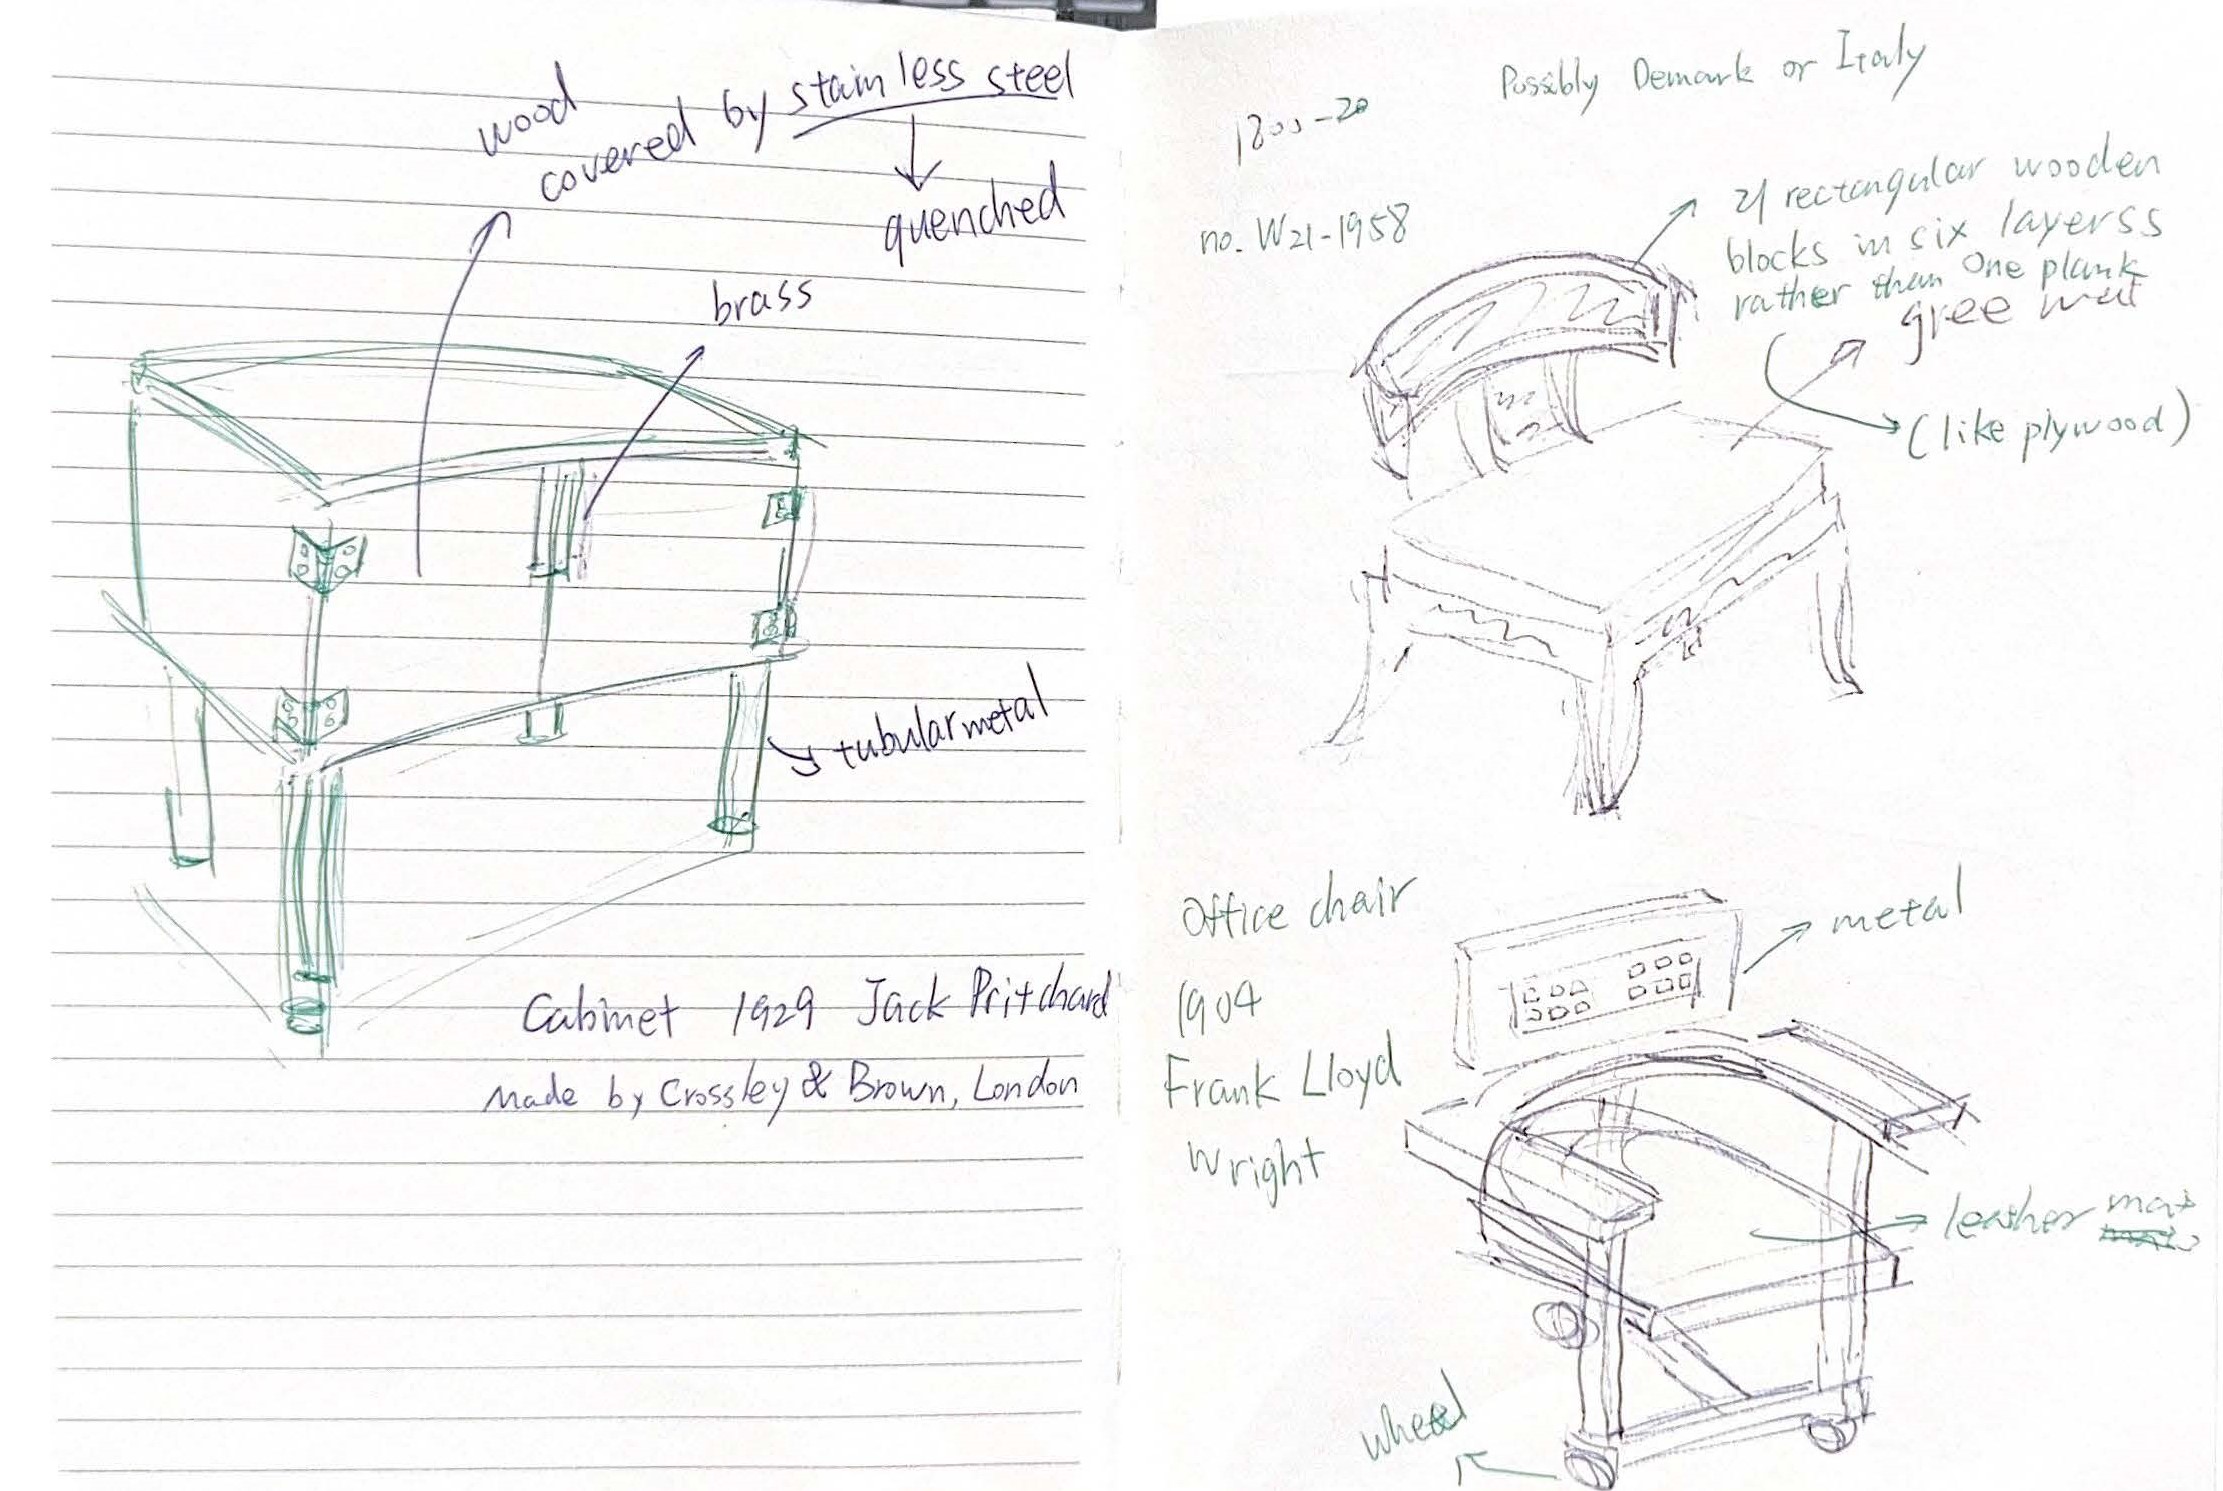 wood
covered by stainless steel
quenched
brass
tubular metal
Cabinet 1929 Jack Pritchard
Made by Crossley & Brown, London
Possibly Demark or Italy
1800-20
no. W21-1958
21 rectangular wooden
blocks in six layerss
rather than One plank
gree mat
(like plywood)
Office chair
1904
Frank Lloyd
Wright
metal
leather mat
wheel